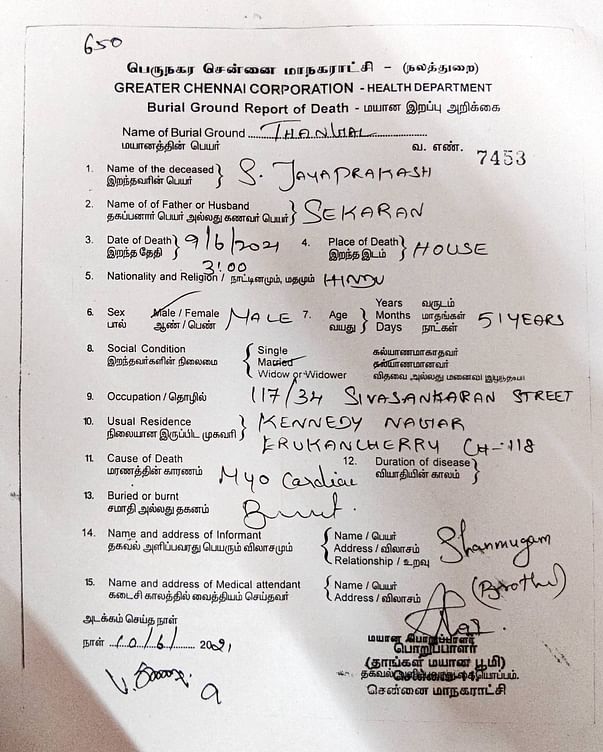 650
பெருநகர சென்னை மாநகராட்சி - (நலத்துறை)
GREATER CHENNAI CORPORATION - HEALTH DEPARTMENT
Burial Ground Report of Death - மயான இறப்பு அறிக்கை
Name of Burial Ground THANGAL
மயானத்தின் பெயர் வ. எண். 7453
1. Name of the deceased } S. JAYAPRAKASH
இறந்தவரின் பெயர்
2. Name of of Father or Husband } SEKARAN
தகப்பனார் பெயர் அல்லது கணவர் பெயர்
3. Date of Death } 9/6/2021 4. Place of Death } HOUSE
இறந்த தேதி இறந்த இடம்
3:00
5. Nationality and Religion / நாட்டினமும், மதமும் HINDU
6. Sex Male / Female MALE 7. Age Years வருடம்
பால் ஆண் / பெண் வயது Months மாதங்கள் 51 YEARS
Days நாட்கள்
8. Social Condition Single கல்யாணமாகாதவர்
இறந்தவர்களின் நிலைமை Married கல்யாணமானவர்
Widow or Widower விதவை அல்லது மனைவி
9. Occupation / தொழில் 117/34 SIVASANKARAN STREET
10. Usual Residence } KENNEDY NAGAR
நிலையான இருப்பிட முகவரி ERUKANCHERRY CH-118
11. Cause of Death Myo Cardial 12. Duration of disease }
மரணத்தின் காரணம் வியாதியின் காலம்
13. Buried or burnt Burnt.
சமாதி அல்லது தகனம்
14. Name and address of Informant Name / பெயர் Shanmugam
தகவல் அளிப்பவரது பெயரும் விலாசமும் Address / விலாசம்
Relationship / உறவு (Brother)
15. Name and address of Medical attendant Name / பெயர்
கடைசி காலத்தில் வைத்தியம் செய்தவர் Address / விலாசம்
அடக்கம் செய்த நாள்
நாள் 10/6/ 2021
மயான பொறுப்பாளர்
பொறுப்பாளர்
(தாங்கள் மயான பூமி)
சென்னை மாநகராட்சி